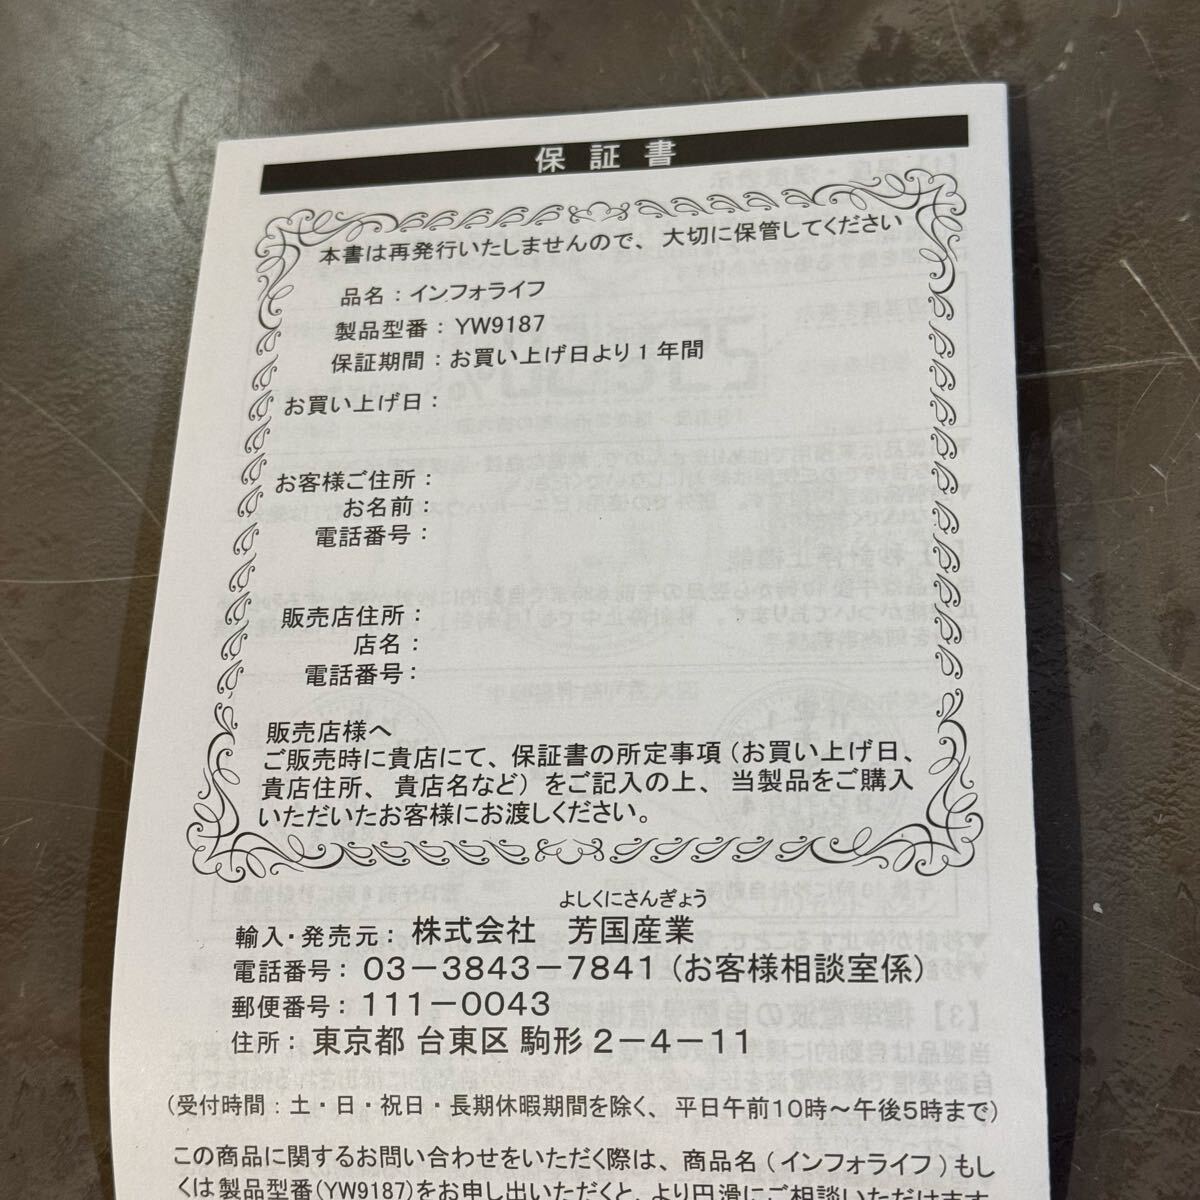 保証書
本書は再発行いたしませんので、大切に保管してください
品名：インフォライフ
製品型番：YW9187
保証期間：お買い上げ日より１年間
お買い上げ日：
お客様ご住所：
お名前：
電話番号：
販売店住所：
店名：
電話番号：
販売店様へ
ご販売時に貴店にて、保証書の所定事項（お買い上げ日、
貴店住所、貴店名など）をご記入の上、当製品をご購入
いただいたお客様にお渡しください。
よしくにさんぎょう
輸入・発売元：株式会社　芳国産業
電話番号：03－3843－7841（お客様相談室係）
郵便番号：111－0043
住所：東京都 台東区 駒形 2－4－11
（受付時間：土・日・祝日・長期休暇期間を除く、平日午前10時～午後5時まで）
この商品に関するお問い合わせをいただく際は、商品名（インフォライフ）もし
くは製品型番(YW9187)をお申し出いただくと、より円滑にご相談いただけます